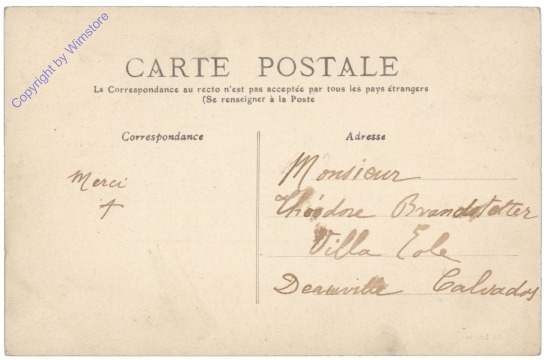 Copyright by Wimstore
CARTE POSTALE
La Correspondance au recto n'est pas acceptée par tous les pays étrangers
(Se renseigner à la Poste
Correspondance
Adresse
Merci
Monsieur
Théodore Brandstetter
Villa Eole
Deauville Calvados